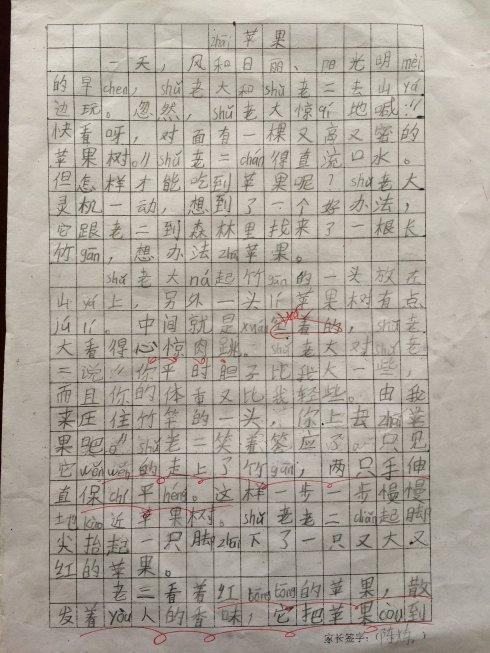 zhāi苹果
一天，风和日丽、阳光明mèi
的早chen，shǔ老大和shǔ老二去山yá
边玩。忽然，shǔ老大惊qí地喊：“
快看呀，对面有一棵又高又密的
苹果树。”shǔ老二chán得直流口水。
但怎样才能吃到苹果呢？shǔ老大
灵机一动，想到了一个好办法，
它跟老二到森林里找来了一根长
竹gān，想办法zhāi苹果。
shǔ老大ná起竹gān的一头放在
山yá上，另外一头lí苹果树有点
jù lí。中间就是xuán着的，shǔ老
大看得心惊肉跳。shǔ老大对shǔ老
二说：“你平时胆子比我大一些，
而且你的体重又比我轻些。由我
来压住竹竿的一头，你上去zhāi苹
果吧。”shǔ老二笑着答应了。只见
它wěnwěn的走上了竹gān，两只手伸
直保chí平héng。这样一步一步慢慢
地kào近苹果树。shǔ老老二diǎn起脚
尖抬起一只脚zhāi下了一只又大又
红的苹果。
老二看着红tōngtōng的苹果，散
发着yòu人的香味，它把苹果còu到
家长签字：